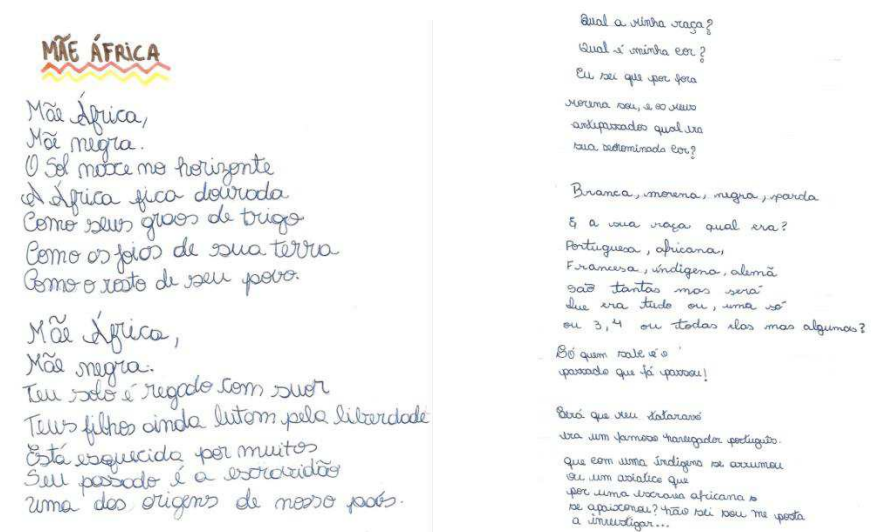 MÃE ÁFRICA
Mãe África,
Mãe negra.
O Sol nasce no horizonte
A África fica dourada
Como seus graos de trigo
Como os joios de sua terra
Como o rosto de seu povo.
Mãe África,
Mãe negra.
Teu solo é regado com suor
Teus filhos ainda lutam pela liberdade
Está esquecida por muitos
Seu passado é a escravidão
uma das origens de nosso país.
Qual a minha raça?
Qual é minha cor?
Eu sei que por fora
morena sou, e os meus
antepassados qual era
sua cor?
Branca, morena, negra, parda
E a sua raça qual era?
Portuguesa, africana,
Francesa, indígena, alemã
são tantas mas será
Que era tudo ou, uma só
ou 3, 4 ou todas elas mas algumas?
Só quem sabe é o
passado que já passou!
Será que meu tataravô
era um famoso navegador português.
que com uma indígena se arrumou
ou um asiático que
por uma escrava africana
se apaixonou? não sei sou me
a investigar...